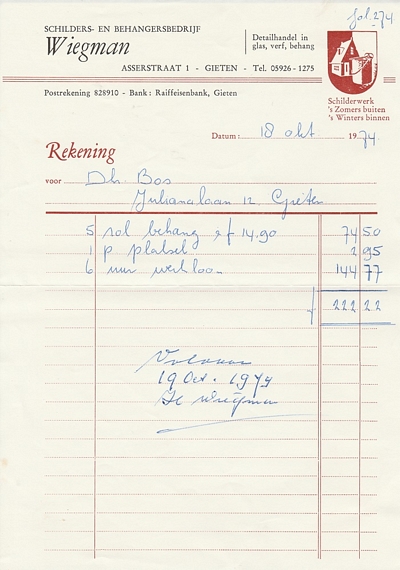 fol. 274
SCHILDERS- EN BEHANGERSBEDRIJF
Wiegman
Detailhandel in
glas, verf, behang
ASSERSTRAAT 1 - GIETEN - Tel. 05926 - 1275
Postrekening 828910 - Bank: Raiffeisenbank, Gieten
Schilderwerk
's Zomers buiten
's Winters binnen
Datum: 18 okt 1974.
Rekening
voor Dhr Bos
Julianalaan 12 Gieten
5 rol behang à f 14.90 74 50
1 p plaksel 2 95
6 uur werkloon 144 77
f 222 22
Voldaan
19 Oct. 1974
H Wiegman